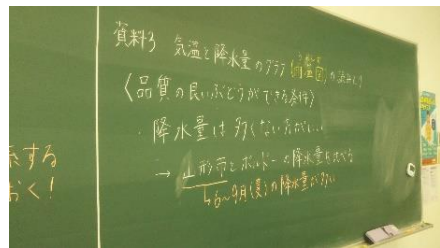 資料3 気温と降水量のグラフ(雨温図)の読みとり
〈品質の良いぶどうができる条件〉
・降水量は多くない方がいい
→ 山形市とボルドーの降水量を比べる
↳6〜9月(夏)の降水量が多い
する
おく!